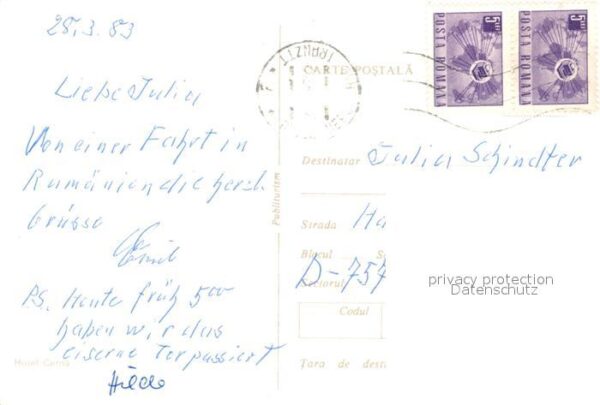 28.3.83
Liebe Julia
Von einer Fahrt in
Rumänien die herzl.
Grüsse
Emil
PS. Heute früh 5oo
haben wir das
eiserne Tor passiert
Hilde
Hotel
Publiturism
TRANZIT
CARTE POȘTALĂ
POSTA ROMANA
POSTA ROMANA
Destinatar Julia Schindler
Strada Ha
Blocul S
D-754
Sectorul
Codul
Țara de dest
privacy protection
Datenschutz